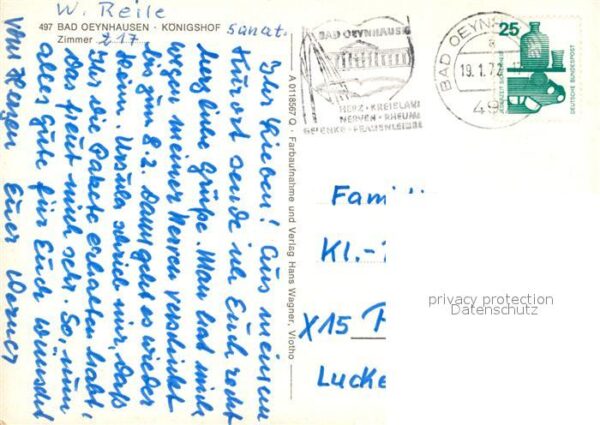 W. Reile
497 BAD OEYNHAUSEN - KÖNIGSHOF
Zimmer 217
Ihr Lieben! Aus meinem
sanat.
Kurort sende ich Euch recht
herzliche Grüße. Man hat mich
wegen meiner Nerven verschickt
bis zum 8.2. Dann geht es wieder
heim. Ursula schrieb mir, daß
Ihr die Pakete erhalten habt,
das freut mich sehr. So, nun
alles Gute für Euch wünscht
von Herzen Euer Werner
A 0118567 O · Farbaufnahme und Verlag Hans Wagner, Vlotho
BAD OEYNHAUSEN
HERZ · KREISLAUF
NERVEN · RHEUMA
GELENKE · FRAUENLEIDEN
BAD OEYNH
19.1.7
49
25
DEUTSCHE BUNDESPOST
Fami
Kl.-
X15
Lucke
privacy protection
Datenschutz